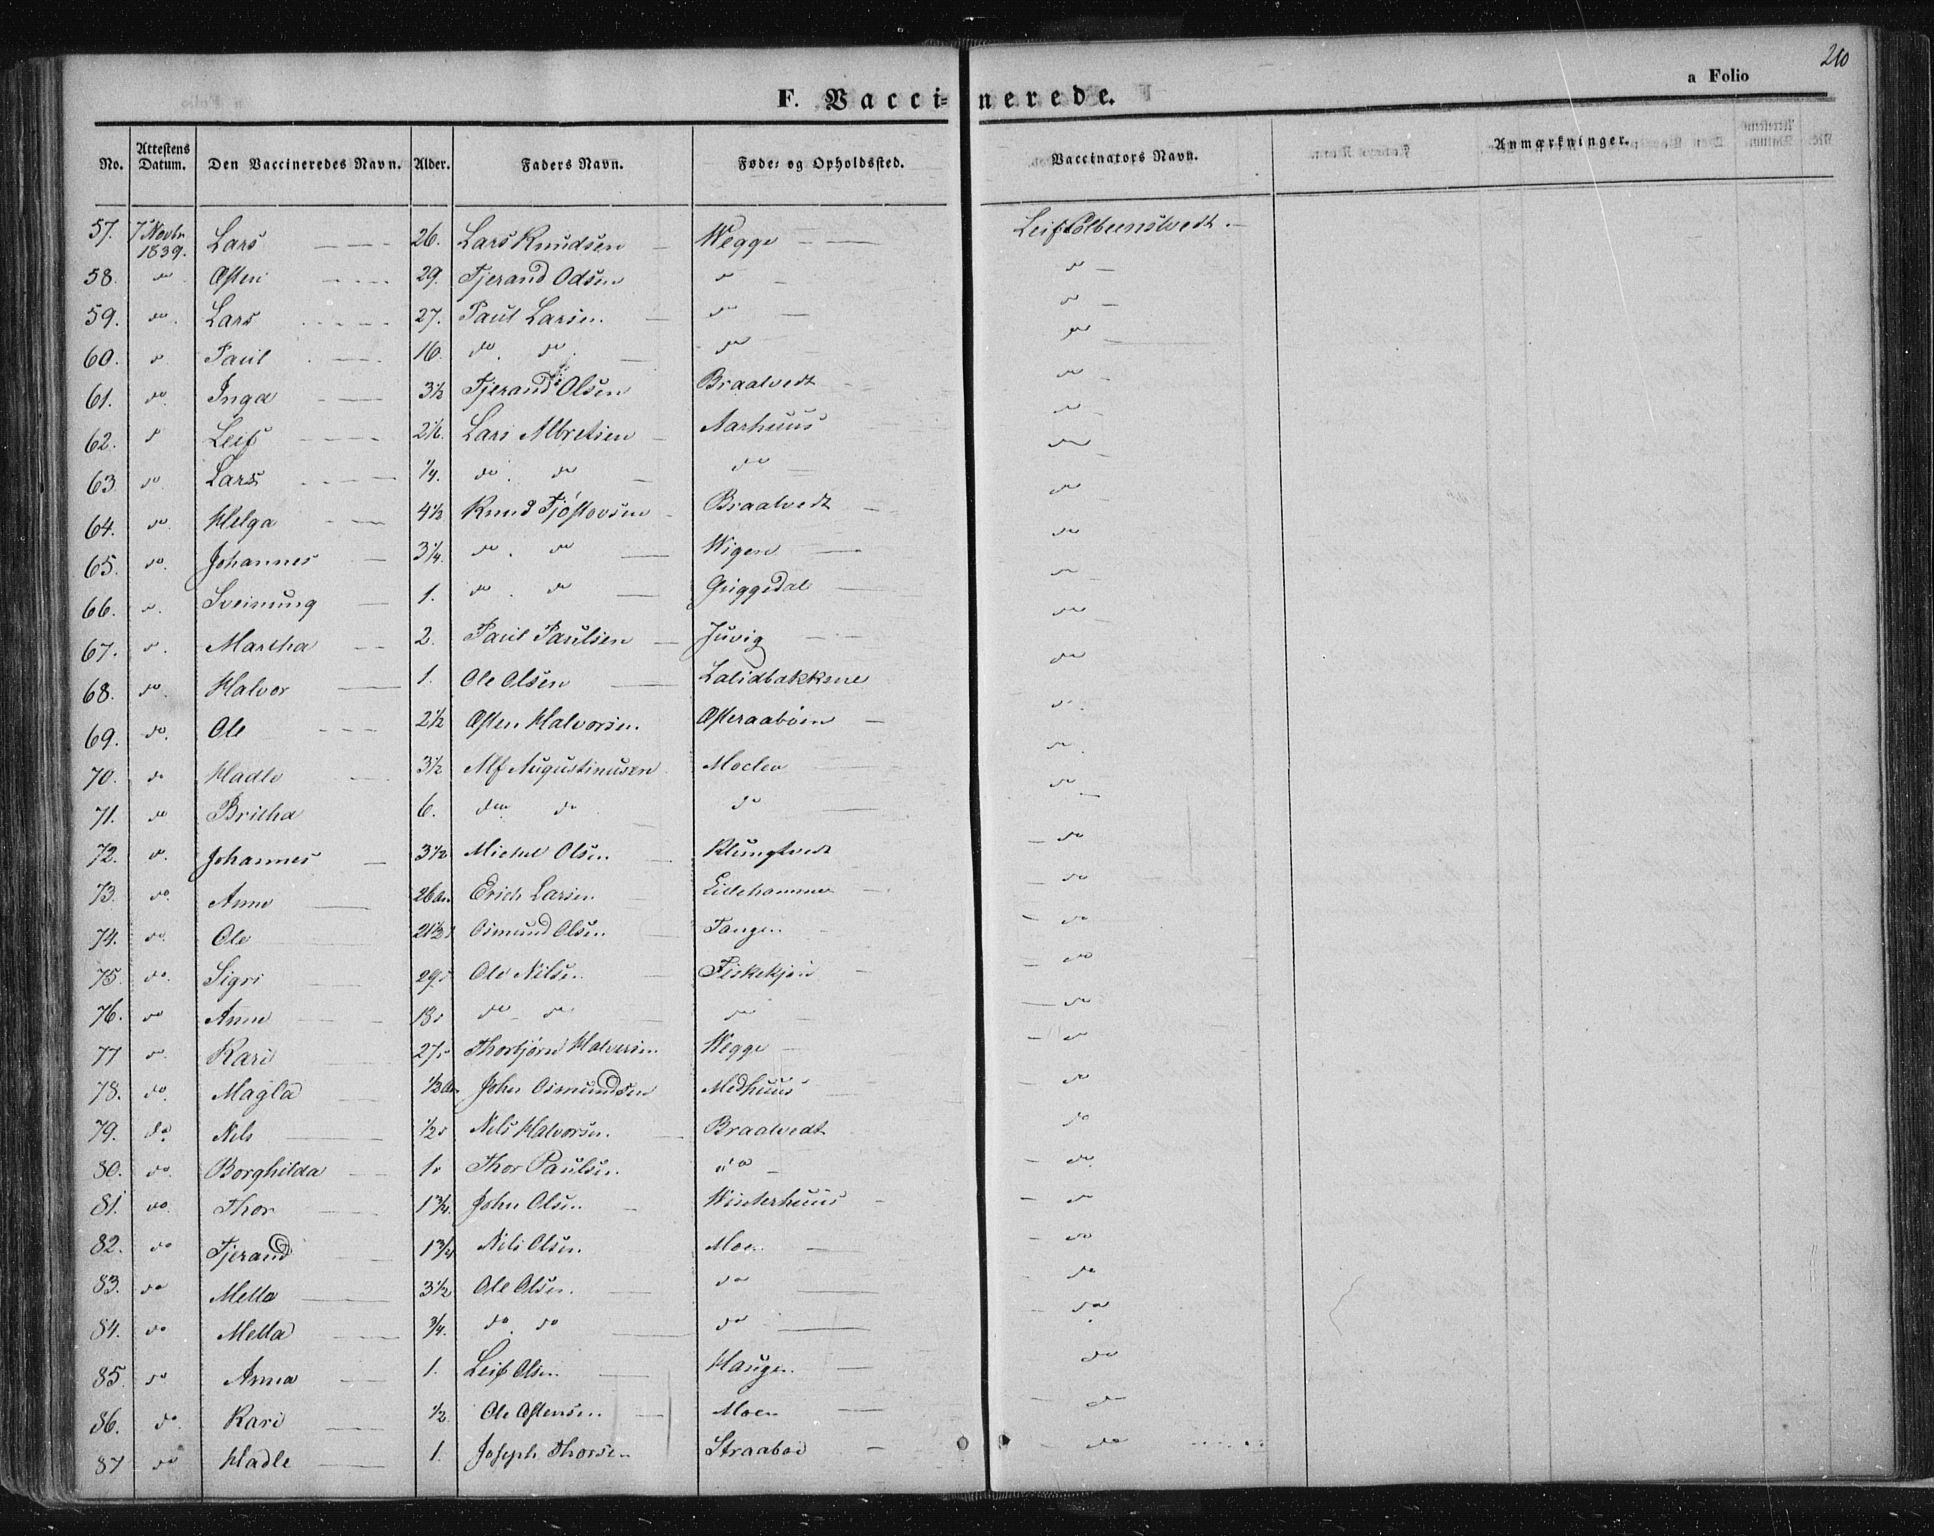 210
a Folio
F. Vaccinerede.
No. Attestens Datum. Den Vaccineredes Navn. Alder. Faders Navn. Føde- og Opholdssted. Vaccinators Navn. Anmærkninger.
57. 7 Novbr 1839. Lars 26. Lars Knudsen Wegge Leif
58. do Østen 29. Tjerand Odsen do do
59. do. Lars 27. Paul Larsen do do
60. do Paul 16. do. do. do do
61. do. Inga 3½ Tjerand Olsen Braatvedt do
62. do Leif Lars Albretsen Aarhuus do
63 do Lars ¼. do. do do do
64. do. Helga 4½ Knud Tjøstovsen Braatvedt do
65. do. Johannes 3¼. do. do Wigen do
66. do. Sveinung 1. do. do Griggedal do
67. do. Martha 2. Paul Paulsen Juvig do
68. do. Halvor 1. Ole Olsen Lalidbakkene do
69. do. Ole 2½ Østen Halvorsen. Østeraabøen do.
70. do Hadle 3½ Alf Augustinusen Moelen do.
71. do Britha 6. do do do do
72. do. Johannes 3½ Michel Olsen Klungtvedt do
73. do. Anne 26 Erich Larsen Eidehammer do
74. do. Ole Osmund Olsen Tangen do
75. do. Sigri 29 Ole Nilsen Fiskekjøn do
76. do Anne 18 do do do do
77 do. Kari 27 Thorbjørn Halvorsen Wegge do
78. do. Magla John Osmundsen Medhuus do
79. do. Nils ½ Nils Halvorsen. Braatvedt do
80. do. Borghilda 1 Thor Paulsen do do.
81. do. Thor 1¾. John Olsen Winterhuus do
82. do Tjerand 1¾ Nils Olsen Moen do
83. do Metta 3½ Ole Olsen. do do
84. do Metta ¾. do. do do do
85 do Anna 1. Leif Olsen Haugen do
86. do Kari ½ Ole Østensen Moen do
87 do Hadle 1. Joseph Thorsen Straabøe do